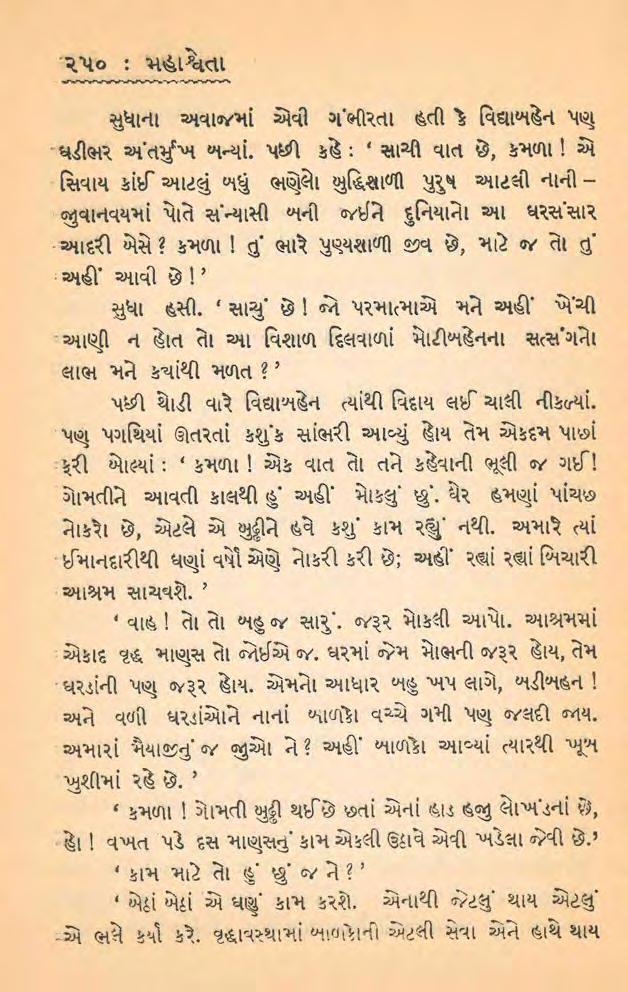 ૨૫૦ : મહાશ્વેતા
સુધાના અવાજમાં એવી ગંભીરતા હતી કે વિદ્યાબહેન પણ
ઘડીભર અંતર્મુખ બન્યાં. પછી કહે : ‘ સાચી વાત છે, કમળા ! એ
સિવાય કાંઈ આટલું બધું ભણેલો બુદ્ધિશાળી પુરુષ આટલી નાની –
જુવાનવયમાં પોતે સંન્યાસી બની જઈને દુનિયાનો આ ઘરસંસાર
આદરી બેસે ? કમળા ! તું ભારે પુણ્યશાળી જીવ છે, માટે જ તો તું
અહીં આવી છે ! ’
સુધા હસી. ‘ સાચું છે ! જો પરમાત્માએ મને અહીં ખેંચી
આણી ન હોત તો આ વિશાળ દિલવાળાં મોટીબહેનના સત્સંગનો
લાભ મને ક્યાંથી મળત ? ’
પછી થોડી વારે વિદ્યાબહેન ત્યાંથી વિદાય લઈ ચાલી નીકળ્યાં.
પણ પગથિયાં ઊતરતાં કશુંક સાંભરી આવ્યું હોય તેમ એકદમ પાછાં
ફરી બોલ્યાં : ‘ કમળા ! એક વાત તો તને કહેવાની ભૂલી જ ગઈ !
ગોમતીને આવતી કાલથી હું અહીં મોકલું છું. ઘેર હમણાં પાંચછ
નોકરો છે, એટલે એ બુઢ્ઢીને હવે કશું કામ રહ્યું નથી. અમારે ત્યાં
ઈમાનદારીથી ઘણાં વર્ષો એણે નોકરી કરી છે; અહીં રહ્યાં રહ્યાં બિચારી
આશ્રમ સાચવશે. ’
‘ વાહ ! તો તો બહુ જ સારું. જરૂર મોકલી આપો. આશ્રમમાં
એકાદ વૃદ્ધ માણસ તો જોઈએ જ. ઘરમાં જેમ મોભની જરૂર હોય, તેમ
ઘરડાંની પણ જરૂર હોય. એમનો આધાર બહુ ખપ લાગે, બડીબહન !
અને વળી ઘરડાંઓને નાનાં બાળકો વચ્ચે ગમી પણ જલદી જાય.
અમારાં મૈયાજીનું જ જુઓ ને ? અહીં બાળકો આવ્યાં ત્યારથી ખૂબ
ખુશીમાં રહે છે. ’
‘ કમળા ! ગોમતી બુઢ્ઢી થઈ છે છતાં એનાં હાડ હજી લોખંડનાં છે,
હો ! વખત પડે દસ માણસનું કામ એકલી ઉઠાવે એવી ખડેલા જેવી છે.’
‘ કામ માટે તો હું છું જ ને ? ’
‘ બેઠાં બેઠાં એ ઘણું કામ કરશે. એનાથી જેટલું થાય એટલું
એ ભલે કર્યા કરે. વૃદ્ધાવસ્થામાં બાળકોની એટલી સેવા એને હાથે થાય